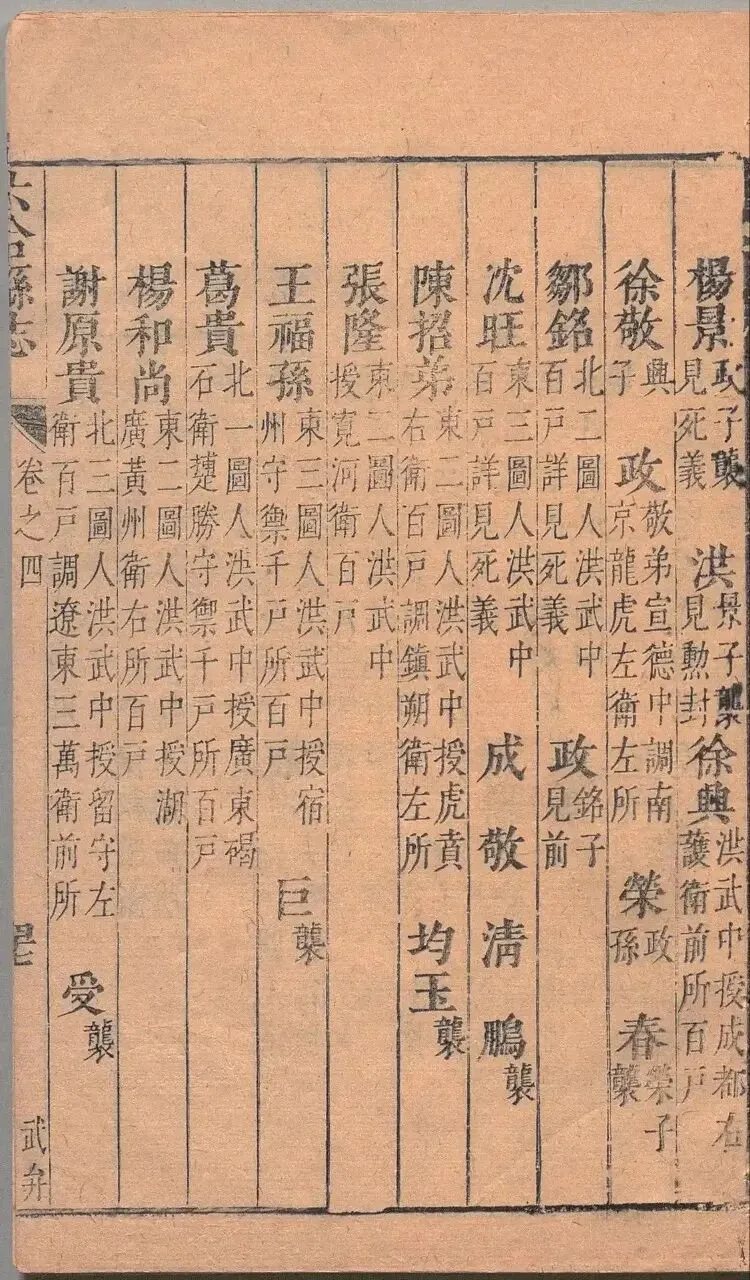 楊景政子襲見死義 洪景子襲見勳封 徐興洪武中授成都右護衛前所百戶
徐敬興子 政敬弟宣德中調南京龍虎左衛左所 榮政孫 春榮子襲
鄒銘北二圖人洪武中百戶詳見死義 政銘子見前
沈旺東三圖人洪武中百戶詳見死義 成 敬 清 鵬襲
陳招弟東二圖人洪武中授虎賁右衛百戶調鎮朔衛左所 均玉襲
張隆東二圖人洪武中授寬河衛百戶
王福孫東三圖人洪武中授宿州守禦千戶所百戶 巨襲
葛貴北一圖人洪武中授廣東碣石衛㨗勝守禦千戶所百戶
楊和尚東二圖人洪武中授湖廣黃州衛右所百戶
謝原貴北三圖人洪武中授留守左衛百戶調遼東三萬衛前所 受襲
六合縣志 卷之四 武弁